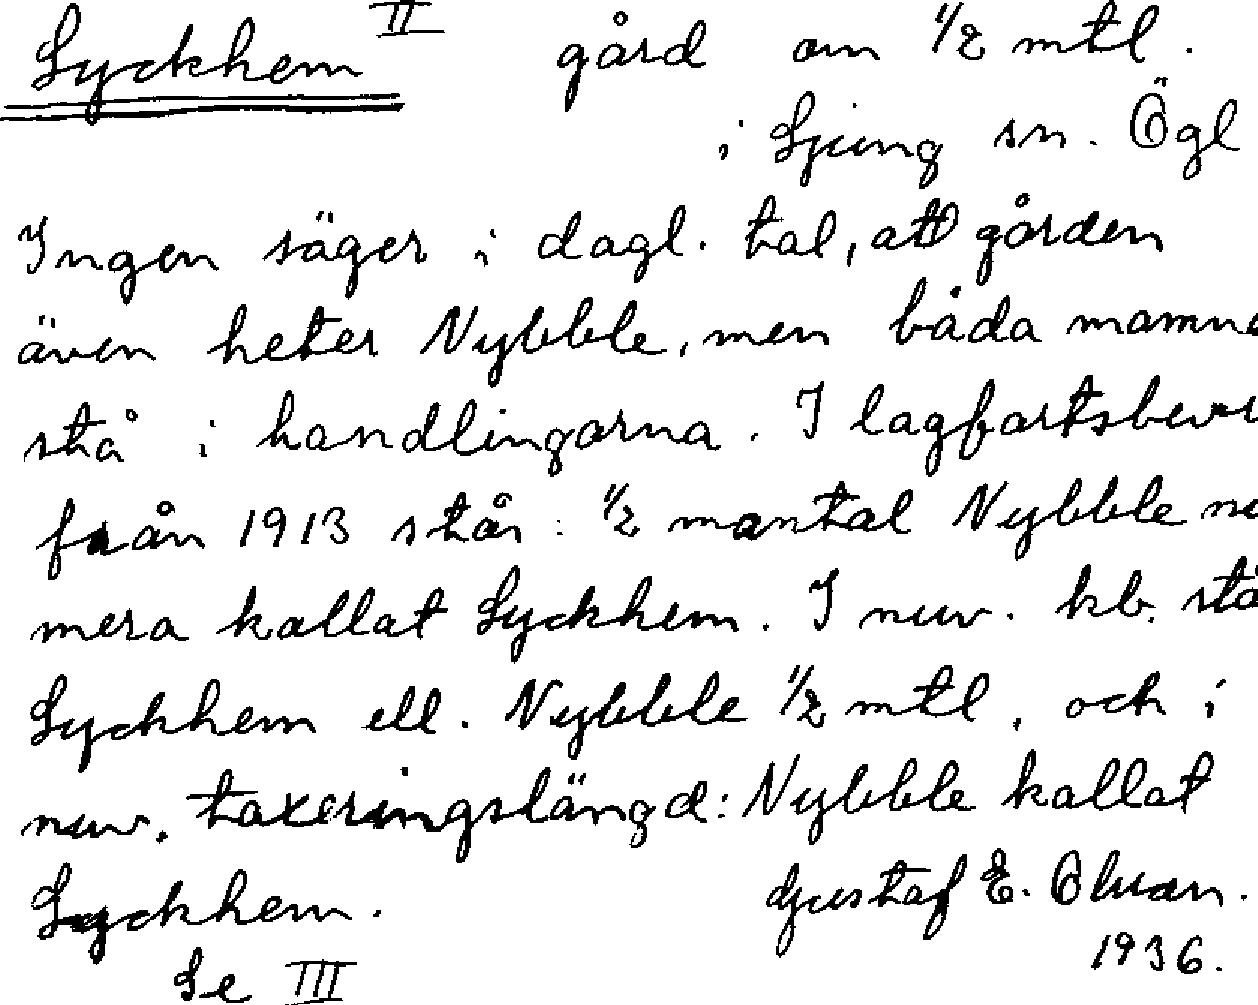 Lyckhem II gård om 1/2 mtl.
i Ljung sn. Ögl
Ingen säger i dagl. tal, att gården
även heter Nybble, men båda namne
stå i handlingarna. I lagfartsbevi
från 1913 står: 1/2 mantal Nybble nu
mera kallat Lyckhem. I nuv. kb. stå
Lyckhem ell. Nybble 1/2 mtl, och i
nuv. taxeringslängd: Nybble kallat
Lyckhem. Gustaf E.
Se III 1936.